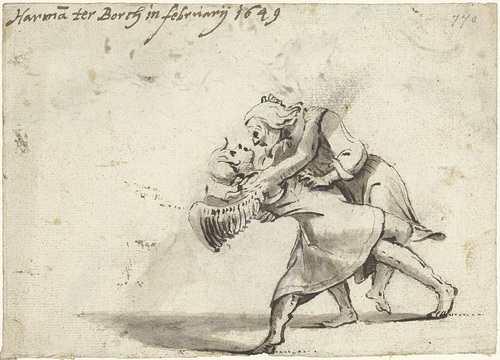 Harmã ter Borch in februarij 1649
770